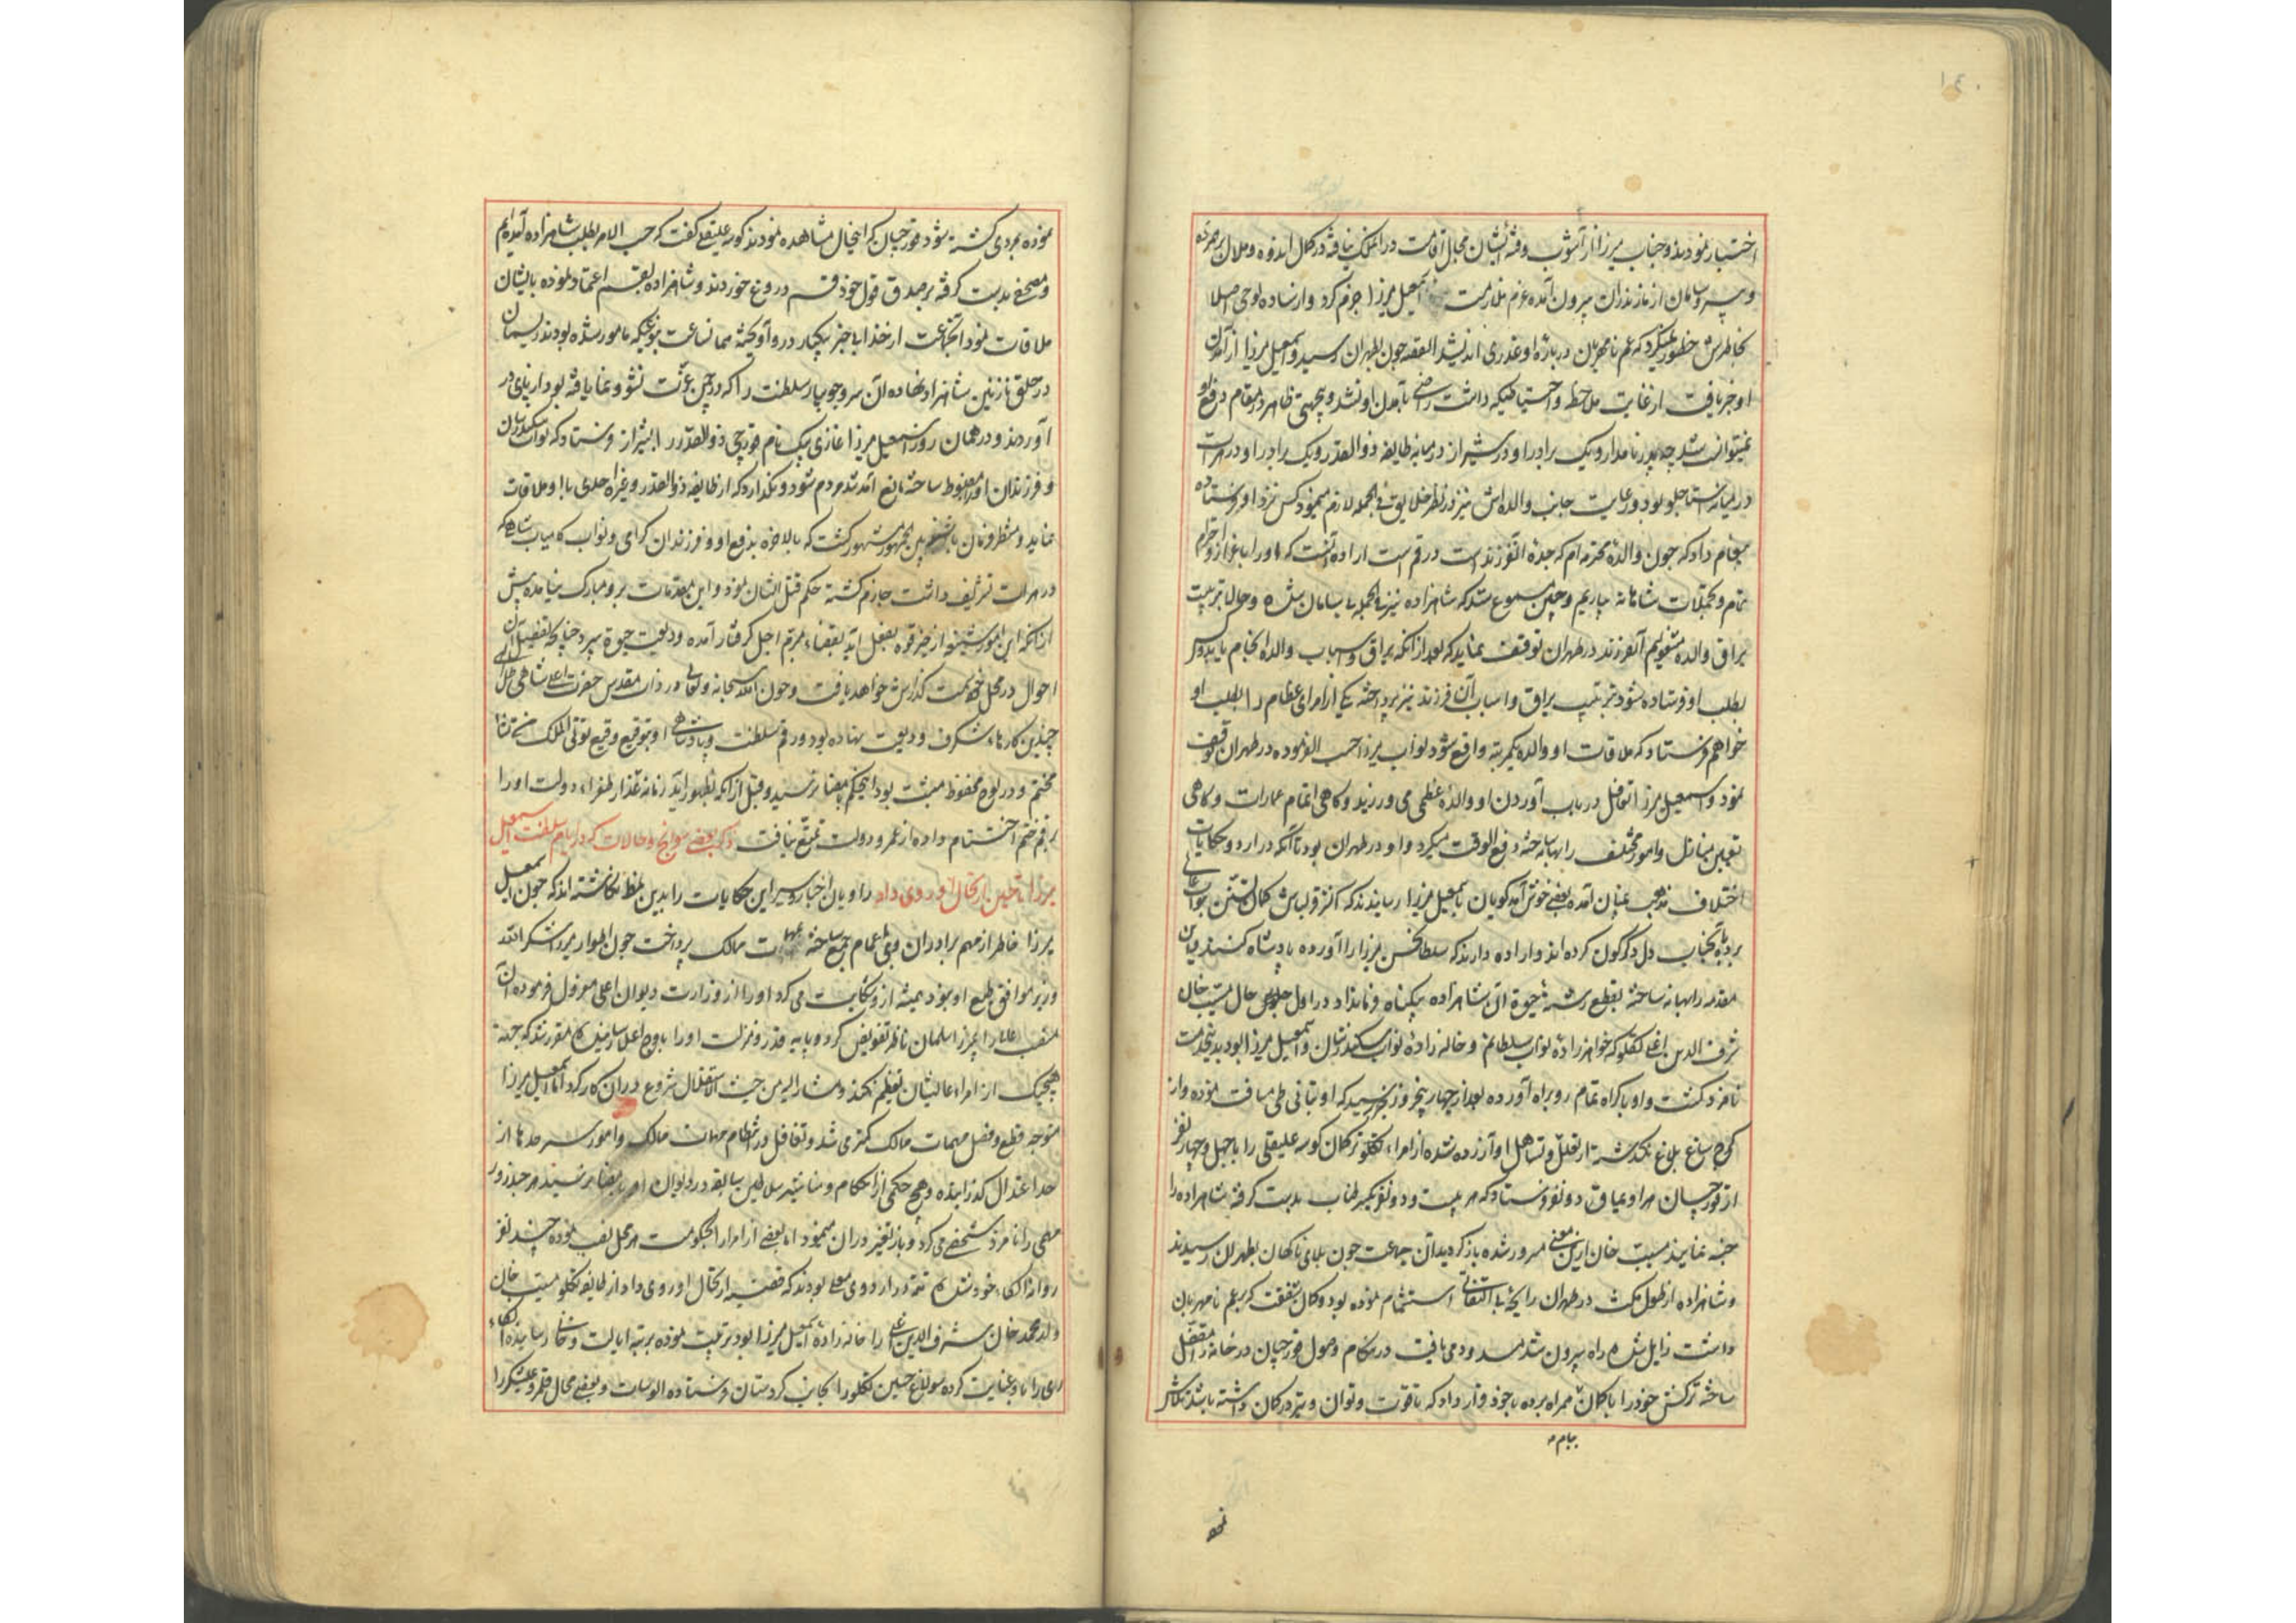 اختیار نمودند و جناب میرزا از آشوب و فتنه ایشان مجال اقامت در آن ملک نیافته در کمال اندوه و ملال
و بی سر و سامان از مازندران بیرون آمده عزم ملازمت اسمعیل میرزا جزم کرد و از ساده لوحی اصلا
بخاطرش خطور نمیکرد که عم نامهربان درباره او غدری اندیشد القصه چون بطهران رسید و اسمعیل میرزا از آمدن
او خبر یافت از غایت ملاحظه و احتیاطیکه داشت راضی بآمدن او نشد و بجهتی ظاهر در مقام دفع او
نمیتوانست شد چه پدر نامدار و یک برادر او در شیراز در میانه طایفه ذوالقدر و یک برادر او در هرات
در میان استاجلو بود و رعایت جانب والده اش نیز در نظر خلایق فی الجمله لازم مینمود کس نزد او فرستاده
پیغام داد که چون والده محترمه ام که جده آنفرزند است در قم است اراده آنست که او را باعزاز و احترام
تمام و تجملات شاهانه بیاریم و چنین مسموع شد که شاهزاده نیز فی الجمله بی سامان شده و حالا بترتیب
یراق والده مشغولیم آنفرزند در طهران توقف نماید که بعد از آنکه یراق و اسباب والده انجام یابد و کس
بطلب او فرستاده شود بترتیب یراق و اسباب آن فرزند نیز پرداخته یکی از امرای عظام را بطلب او
خواهم فرستاد که ملاقات او و والده یکمرتبه واقع شود نواب میرزا حسب الفرموده در طهران توقف
نمود و اسمعیل میرزا تغافل در باب آوردن او و والده عظمی می ورزید و گاهی اتمام عمارات و گاهی
تعیین منازل و امور مختلف را بهانه ساخته دفع الوقت میکرد و او در طهران بود تا آنکه در اردو حکایات
اختلاف مذهب بمیان آمده بعضی خوش آمد گویان باسمعیل میرزا رسانیدند که اکثر قزلباش بگمان تسنن
بدو از آنجناب دل دگرگون کرده اند و اراده دارند که سلطان حسن میرزا را آورده پادشاه کنند
مقدمه را بهانه ساخته بقطع رشته حیوة آن شاهزاده بیگناه فرمان داد در اول جلوس حال مسیب خان
شرف الدین اغلی تکلو که خواهرزاده نواب سلطانم و خاله زاده نواب سکندرشان و اسمعیل میرزا بود بدینخدمت
نامزد گشت و او باکراه تمام رو براه آورده بعد از چهار پنج روز خبر رسید که او بتانی طی مسافت نموده و از
کوچ ساوخ بلاغ نگذشته از تعلل و تساهل او آزرده شده از امراء تکلو ترکمان کوسه علیقلی را با چهل و چهار نفر
از قورچیان هر اویماق دو نفر فرستاد که هر بیست و دو نفر یکسر طناب بدست گرفته شاهزاده را
خبه نمایند مسیب خان ازین معنی مسرور شده باز گردید آن جماعت چون بلای ناگهان بطهران رسیدند
و شاهزاده از طول مکث در طهران رایحه بی التفاتی استشمام نموده بود و گمان شفقت که بعم نامهربان
داشت زایل شده راه بیرون شد مسدود می یافت در هنگام وصول قورچیان در خانه را مقفل
ساخته ترکش خود را با کمان همراه برده با خود قرار داد که تا قوت و توان و تیر در کمان داشته باشد تلاش
نموده بمردی کشته شود قورچیان که اینحال مشاهده نمودند کوسه علیقلی گفت که حسب الامر بطلب شاهزاده آمده ایم
و مصحف بدست گرفته بر صدق قول خود قسم دروغ خوردند و شاهزاده بقسم اعتماد نموده بایشان
ملاقات نمود آنجماعت از خدا بی خبر یکبار درو آویخته همانساعت بنوعیکه مامور شده بودند ریسمان
در حلق نازنین شاهزاده نهاده آن سرو جویبار سلطنت را که در چمن عزت نشو و نما یافته بود از پای در
آوردند و در همان روز اسمعیل میرزا غازی بیک نام قورچی ذوالقدر را بشیراز فرستاد که نواب سکندرشان
و فرزندان او را مضبوط ساخته مانع آمد شد مردم شود و نگذارد که از طایفه ذوالقدر و غیره احدی با او ملاقات
نماید و منتظر فرمان باشد بین الجمهور مشهور گشت که بالاخره بدفع او و فرزندان گرامی و نواب کامیاب شاهی که
در هرات تشریف داشت جازم گشته حکم قتل ایشان نمود و این مقدمات برو مبارک نیامده پیش
از آنکه این امور شنیعه از حیز قوه بفعل آید بقضاء مبرم اجل گرفتار آمده ودیعت حیوة سپرد چنانچه تفصیل آن
احوال در محل خود سمت گذارش خواهد یافت و چون الله سبحانه و تعالی در ذات مقدس حضرت اعلی شاهی ظل اللهی
چندین کارهای شگرف ودیعت نهاده بود و رقم سلطنت و پادشاهی او بتوقیع وقیع توتی الملک من تشا
مختتم و در لوح محفوظ مثبت بود اینحکم بامضا نرسید و قبل از آنکه بظهور آید زمانه غدار طغراء دولت او را
برقم ختم اختتام داده از عمر و دولت تمتع نیافت ذکر بعضی سوانح و حالات که در ایام سلطنت اسمعیل
میرزا تا حین ارتحال او روی داد راویان اخبار و سیر این حکایات را بدین نمط نگاشته اند که چون اسمعیل
میرزا خاطر از مهم برادران و بنی اعمام جمع ساخته بمهمات ممالک پرداخت چون اطوار میرزا شکرالله
وزیر موافق طبع او نبود همیشه ازو شکایت می کرد او را از وزارت دیوان اعلی معزول فرموده آن
منصب اعلی را بمیرزا سلمان ناظر تفویض کرد و پایه قدر و منزلت او را باوج اعلی رسانیده مقرر شد که بجهة
هیچیک از امراء عالیشان تعظیم نکند و مشار الیه من حیث الاستقلال شروع در آن کار کرد اما اسمعیل میرزا
متوجه قطع و فصل مهمات ممالک کمتر می شد و تغافل در انتظام مهمات ممالک و امور سرحدها از
حد اعتدال گذرانیده و هیچ حکمی از احکام و مناشیر سلاطین سابقه در دیوان او بامضا نرسید هر چند روز
مهمی را نامزد شخصی می کرد و باز تغیر در آن مینمود اما بعضی از امرا را بحکومت هر محل نصب نموده چند نفر
روانه الکاء خود شدند تتمه در اردوی معلی بودند که قضیه ارتحال او روی داد از طایفه تکلو مسیب خان
ولد محمد خان شرف الدین اغلی را خاله زاده اسمعیل میرزا بود تربیت نموده برتبه ایالت و خانی رسانیده الکاء
ری را باو عنایت کرده سولاغ حسین تکلو را بجانب کردستان فرستاده الوسات و بعضی محال قلمرو علیشکر را
بنام